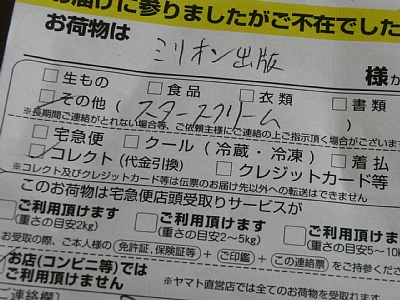 お届けに参りましたがご不在でした
お荷物は
ミリオン出版 様か
□生もの □食品 □衣類 □書類
□その他(スタースクリーム)
※長期間ご連絡がとれない場合等、ご依頼主様にご連絡の上ご指示頂く場合がございます
□宅急便 □クール(冷蔵・冷凍) □着払
□コレクト(代金引換) □クレジットカード等
※コレクト及びクレジットカード等は伝票のお届け先以外への転送はできません
このお荷物は宅急便店頭受取りサービスが
□ご利用頂けます □ご利用頂けます □ご利用頂け
(重さの目安2kg) (重さの目安2~5kg) (重さの目安5~10k
お受取の際、ご本人様の(免許証,保険証等)+(ご印鑑)+(この連絡票)をご持参くださ
お店(コンビニ等)では
ご利用頂けません ※ヤマト直営店では全てのお荷物を受取れます